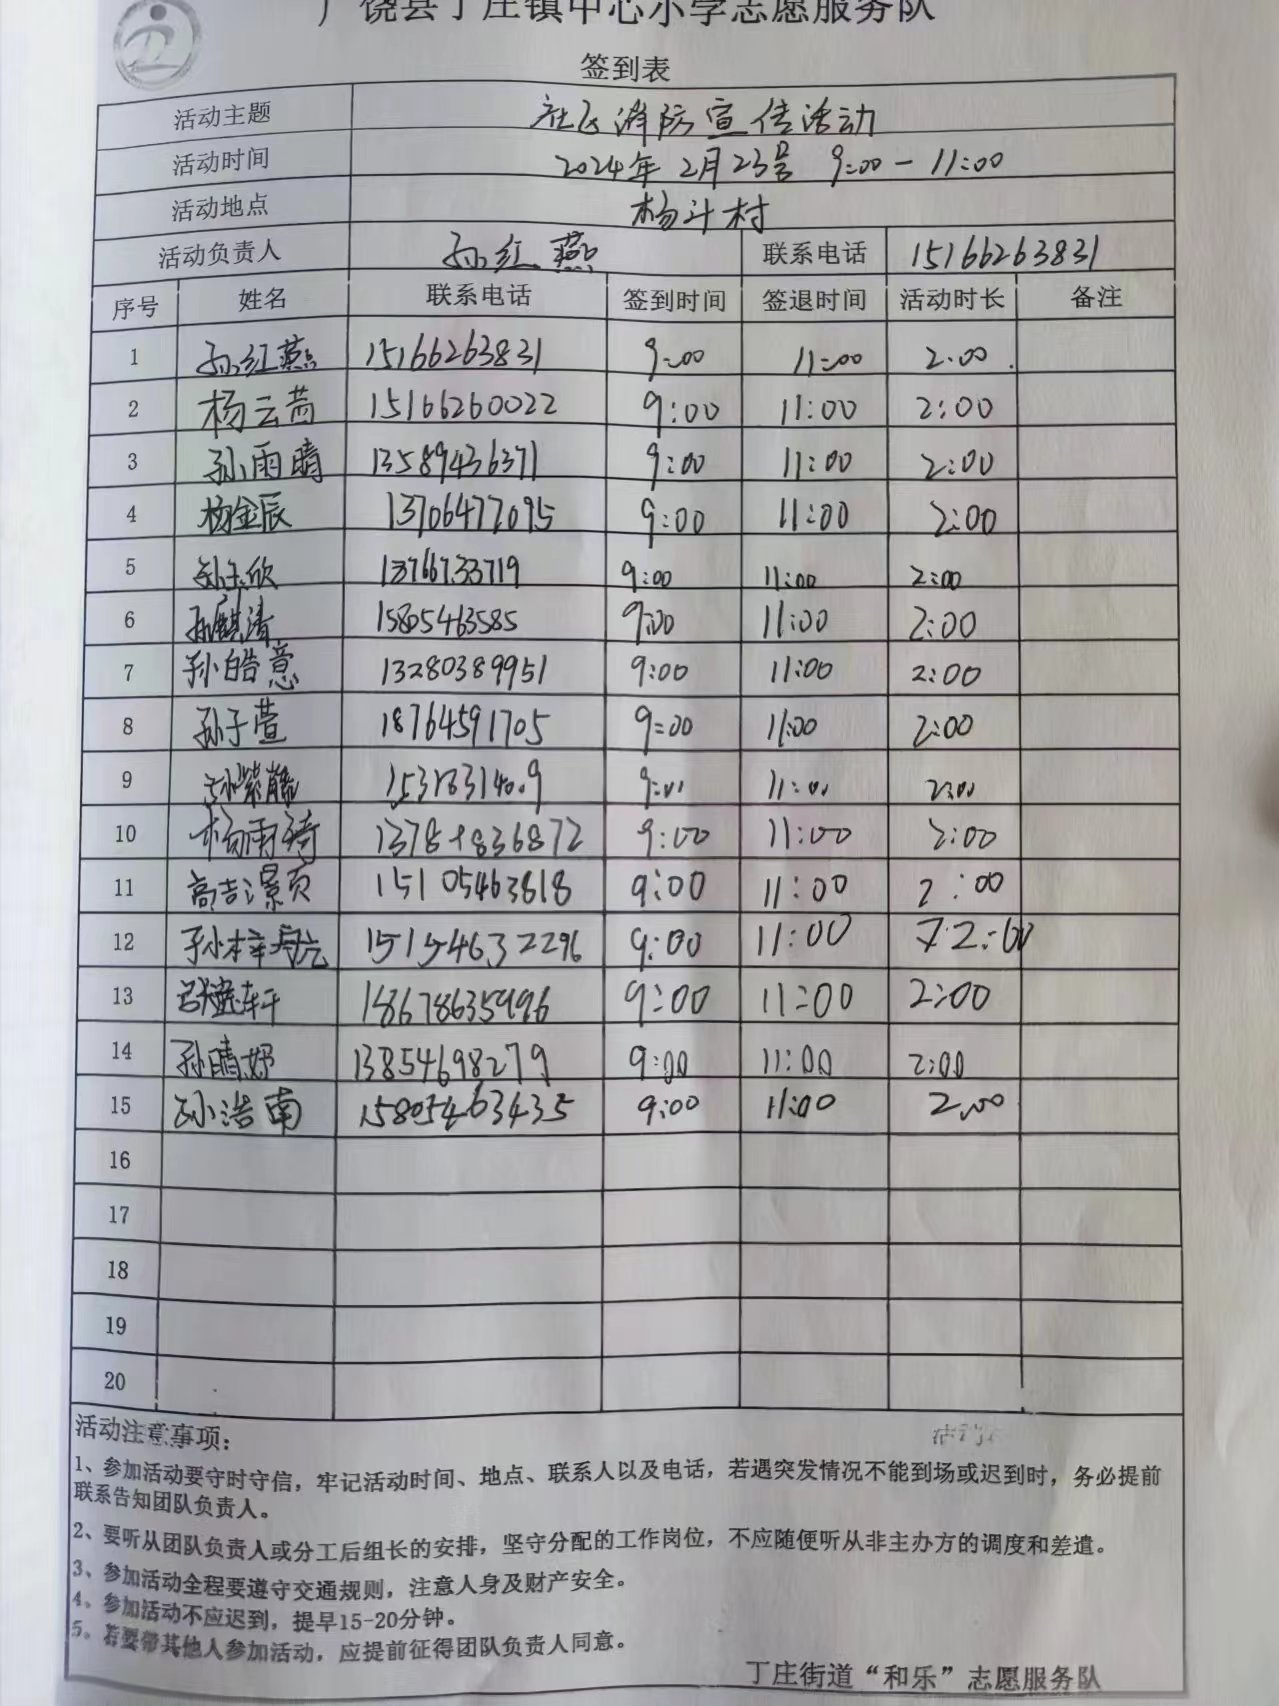 广饶县丁庄镇中心小学志愿服务队
签到表
活动主题 社区消防宣传活动
活动时间 2024年2月23号 9:00-11:00
活动地点 杨斗村
活动负责人 孙红燕 联系电话 15166263831
序号 姓名 联系电话 签到时间 签退时间 活动时长 备注
1 孙红燕 15166263831 9:00 11:00 2.00
2 杨云茜 15166260022 9:00 11:00 2:00
3 孙雨晴 13589436371 9:00 11:00 2:00
4 杨金辰 13706477095 9:00 11:00 2:00
5 孙玉欣 13766733719 9:00 11:00 2:00
6 孙麒清 15805463585 9:00 11:00 2:00
7 孙皓意 13280389951 9:00 11:00 2:00
8 孙子萱 18764591705 9:00 11:00 2:00
9 孙紫藤 9:00 11:00 2:00
10 杨雨琦 9:00 11:00 2:00
11 高吉灏 15105463818 9:00 11:00 2:00
12 孙梓航 15154632296 9:00 11:00 2:00
13 轩 18678635996 9:00 11:00 2:00
14 孙晴妤 13854698279 9:00 11:00 2:00
15 孙浩南 15805463435 9:00 11:00 2.00
16
17
18
19
20
活动注意事项:
1、参加活动要守时守信，牢记活动时间、地点、联系人以及电话，若遇突发情况不能到场或迟到时，务必提前
联系告知团队负责人。
2、要听从团队负责人或分工后组长的安排，坚守分配的工作岗位，不应随便听从非主办方的调度和差遣。
3、参加活动全程要遵守交通规则，注意人身及财产安全。
4、参加活动不应迟到，提早15-20分钟。
5。若要带其他人参加活动，应提前征得团队负责人同意。
丁庄街道“和乐”志愿服务队